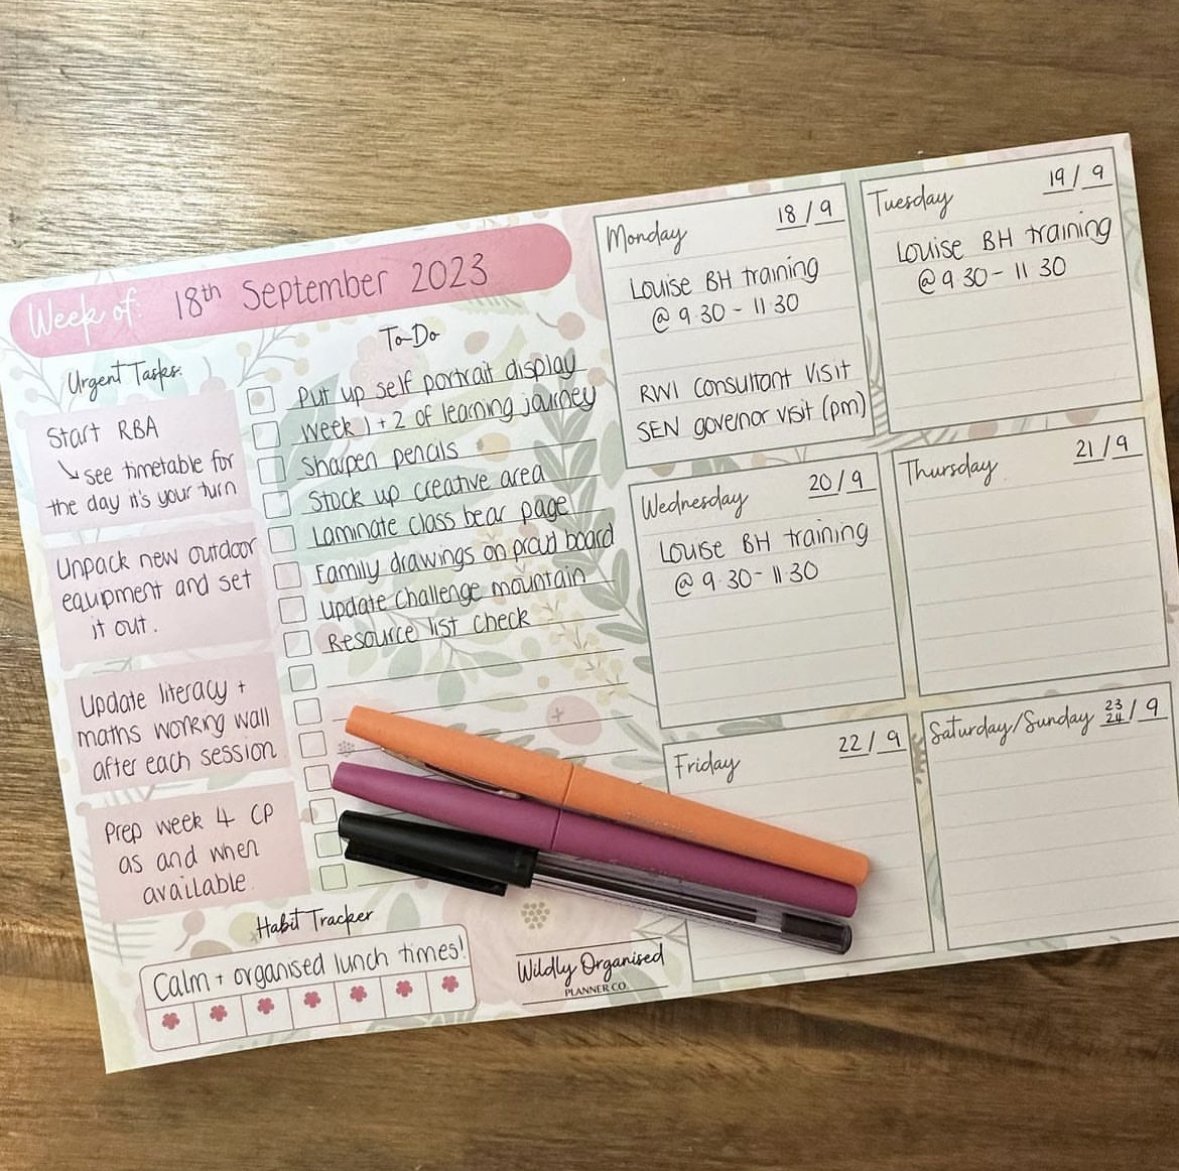 Week of: 18th September 2023
Urgent Tasks:
Start RBA
↳ see timetable for
the day it's your turn
Unpack new outdoor
equipment and set
it out.
Update literacy +
maths working wall
after each session
Prep week 4 CP
as and when
available.
To-Do
Put up self portrait display
Week 1 + 2 of learning journey
Sharpen pencils
Stock up creative area
Laminate class bear page
Family drawings on proud board
Update challenge mountain
Resource list check
Habit Tracker
Calm + organised lunch times!
Wildly Organised
PLANNER CO.
Monday 18/9
Louise BH training
@ 9.30 - 11.30
RWI consultant visit
SEN govenor visit (pm)
Tuesday 19/9
Louise BH training
@ 9.30 - 11.30
Wednesday 20/9
Louise BH training
@ 9.30 - 11.30
Thursday 21/9
Friday 22/9
Saturday/Sunday 23 24/9